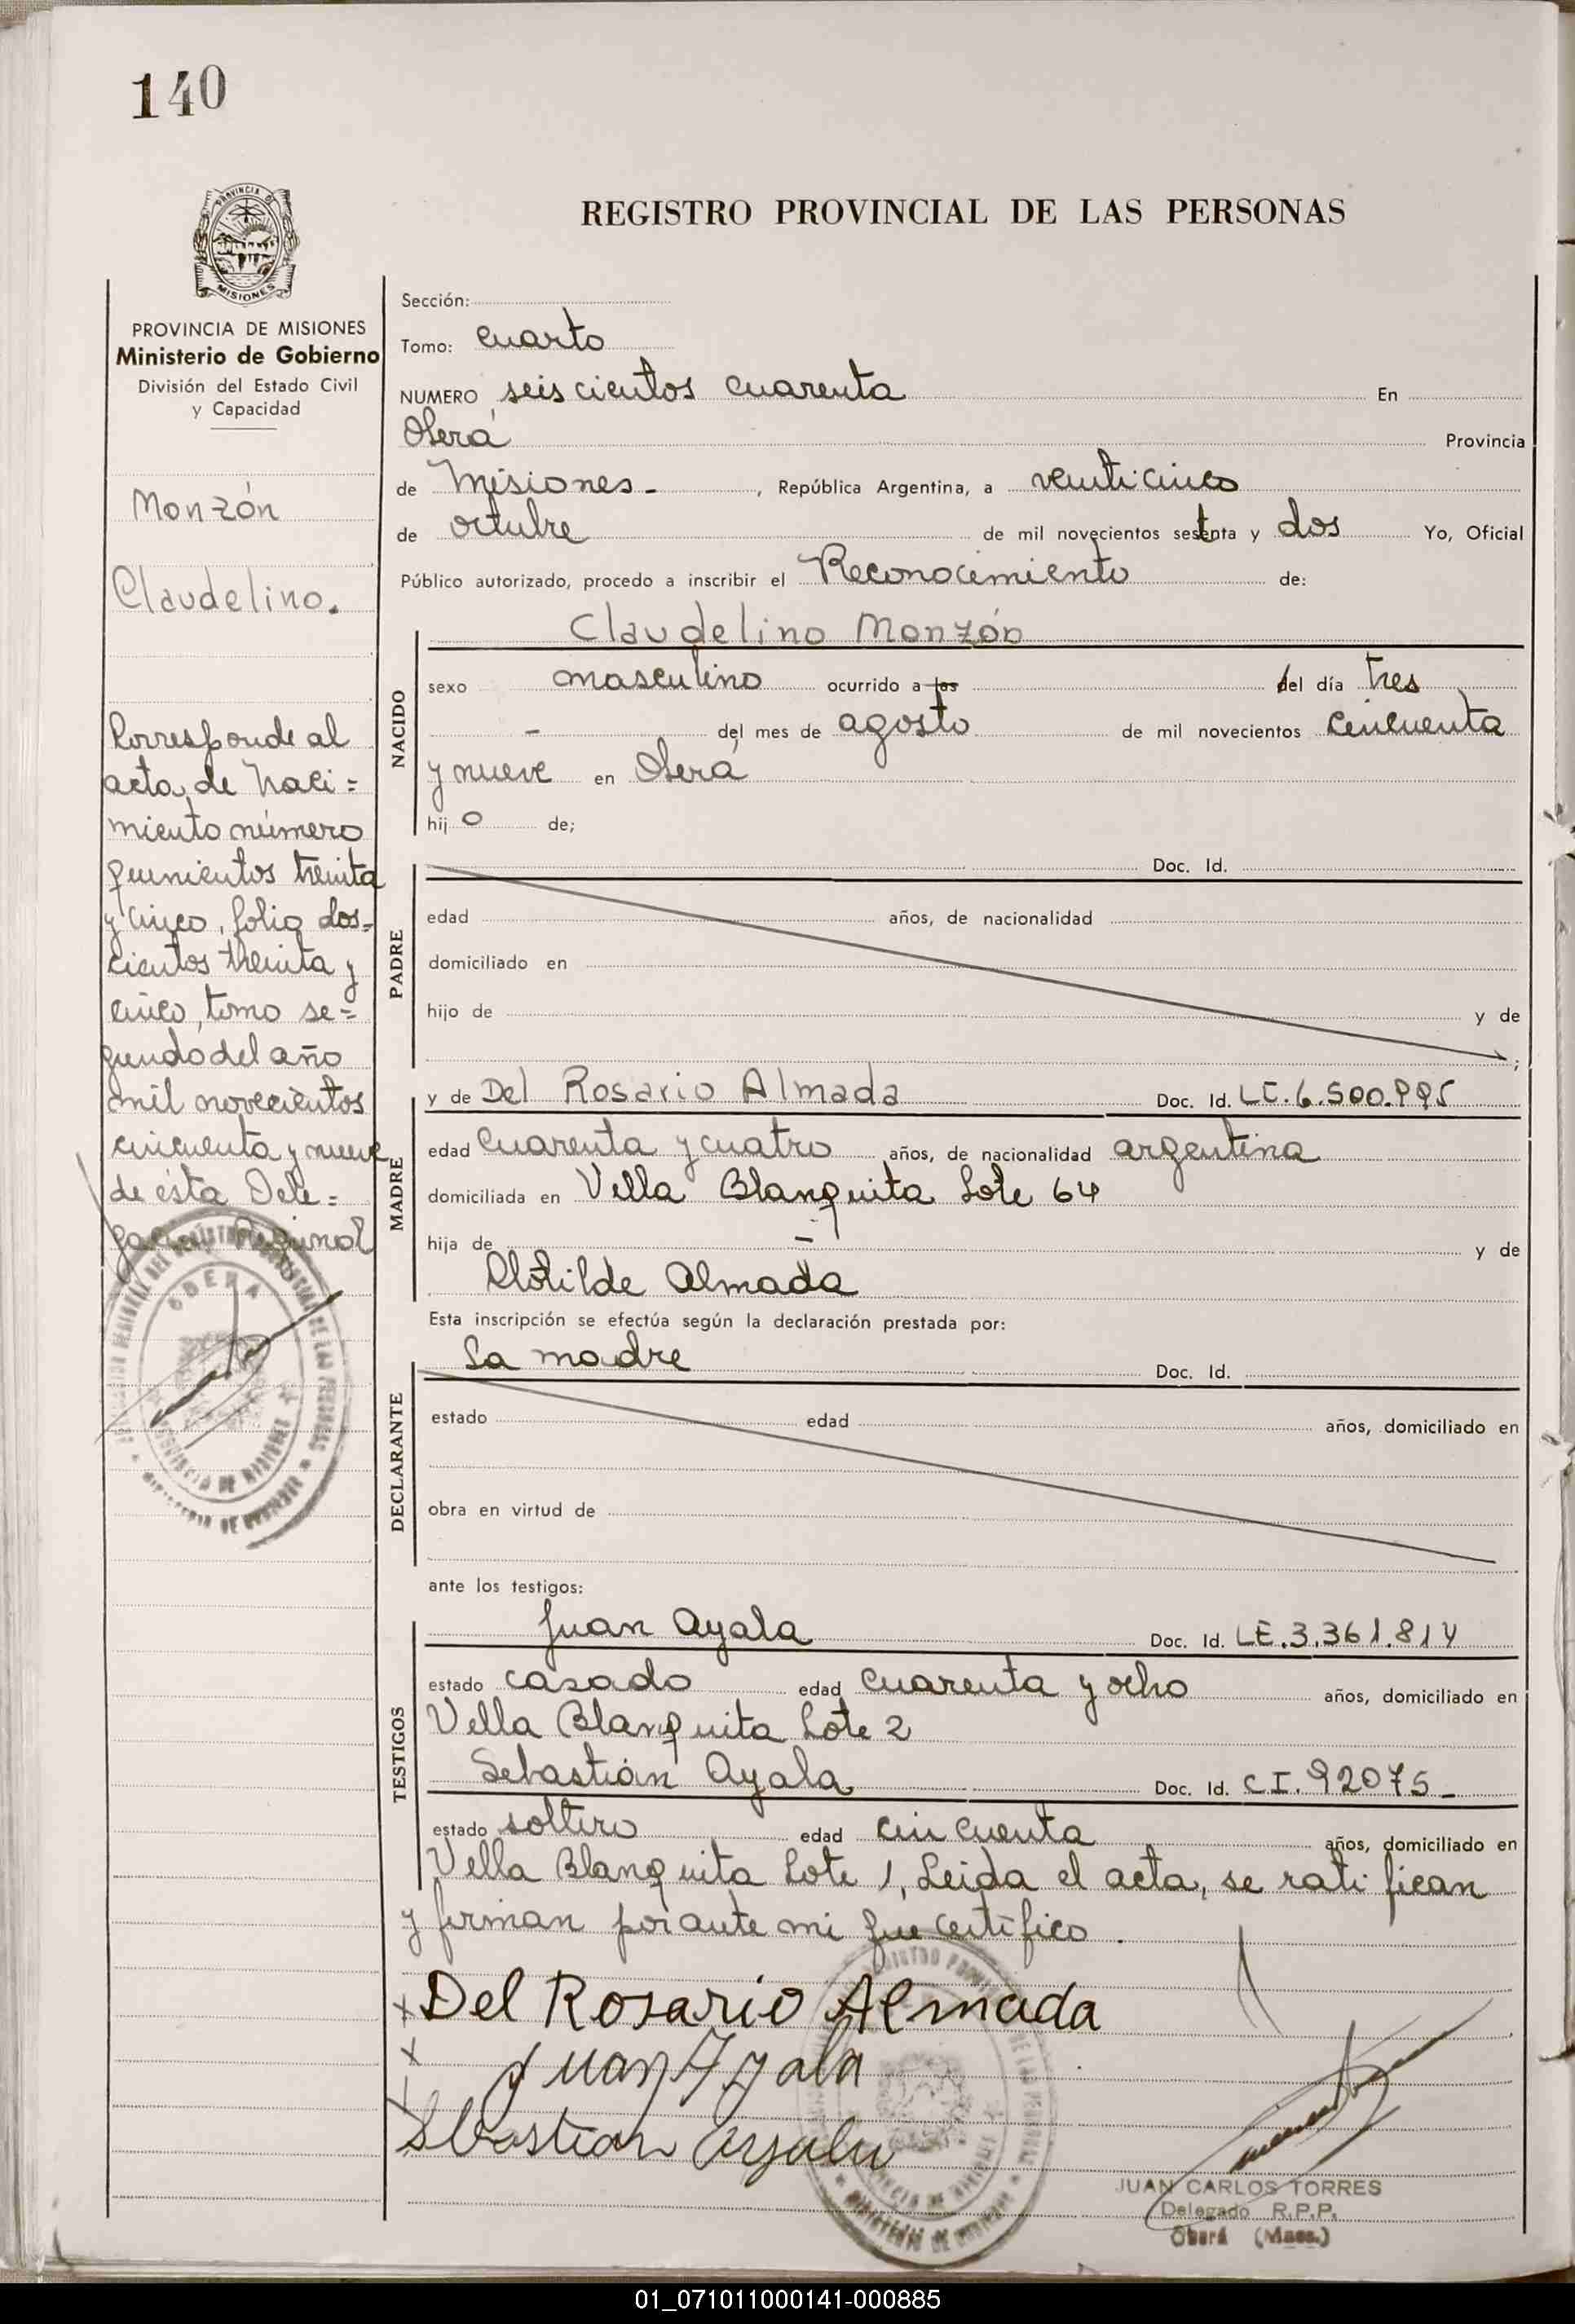 140
PROVINCIA DE
MISIONES
REGISTRO PROVINCIAL DE LAS PERSONAS
PROVINCIA DE MISIONES
Ministerio de Gobierno
División del Estado Civil
y Capacidad
Monzón
Claudelino.
Corresponde al
acta de naci=
miento número
quinientos treinta
y cinco, folio dos-
cientos treinta y
cinco, tomo se=
gundo del año
mil novecientos
cincuenta y nueve
de ésta Dele=
Regional
Sección:
Tomo: Cuarto
NUMERO seiscientos cuarenta En
Oberá Provincia
de Misiones- , República Argentina, a venticinco
de octubre de mil novecientos setenta y dos Yo, Oficial
Público autorizado, procedo a inscribir el Reconocimiento de:
NACIDO
Claudelino Monzón
sexo masculino ocurrido a las del día tres
- del mes de agosto de mil novecientos cincuenta
y nueve en Oberá
hijo de;
PADRE
Doc. Id.
edad años, de nacionalidad
domiciliado en
hijo de y de
;
MADRE
y de Del Rosario Almada Doc. Id. LC.6.500.995
edad cuarenta y cuatro años, de nacionalidad argentina
domiciliada en Villa Blanquita Lote 64
hija de - y de
Clotilde Almada
Esta inscripción se efectúa según la declaración prestada por:
DECLARANTE
La madre Doc. Id.
estado edad años, domiciliado en
obra en virtud de
ante los testigos:
TESTIGOS
Juan Ayala Doc. Id. LE.3.361.814
estado casado edad cuarenta y ocho años, domiciliado en
Villa Blanquita Lote 2
Sebastián Ayala Doc. Id. C.I.92075-
estado soltero edad cincuenta años, domiciliado en
Villa Blanquita Lote 1, Leida el acta, se ratifican
y firman por ante mi que certifico.
x Del Rosario Almada
x Juan Ayala
Sbastian Ayala
JUAN CARLOS TORRES
Delegado R.P.P.
Oberá (Mnes.)
01_071011000141-000885